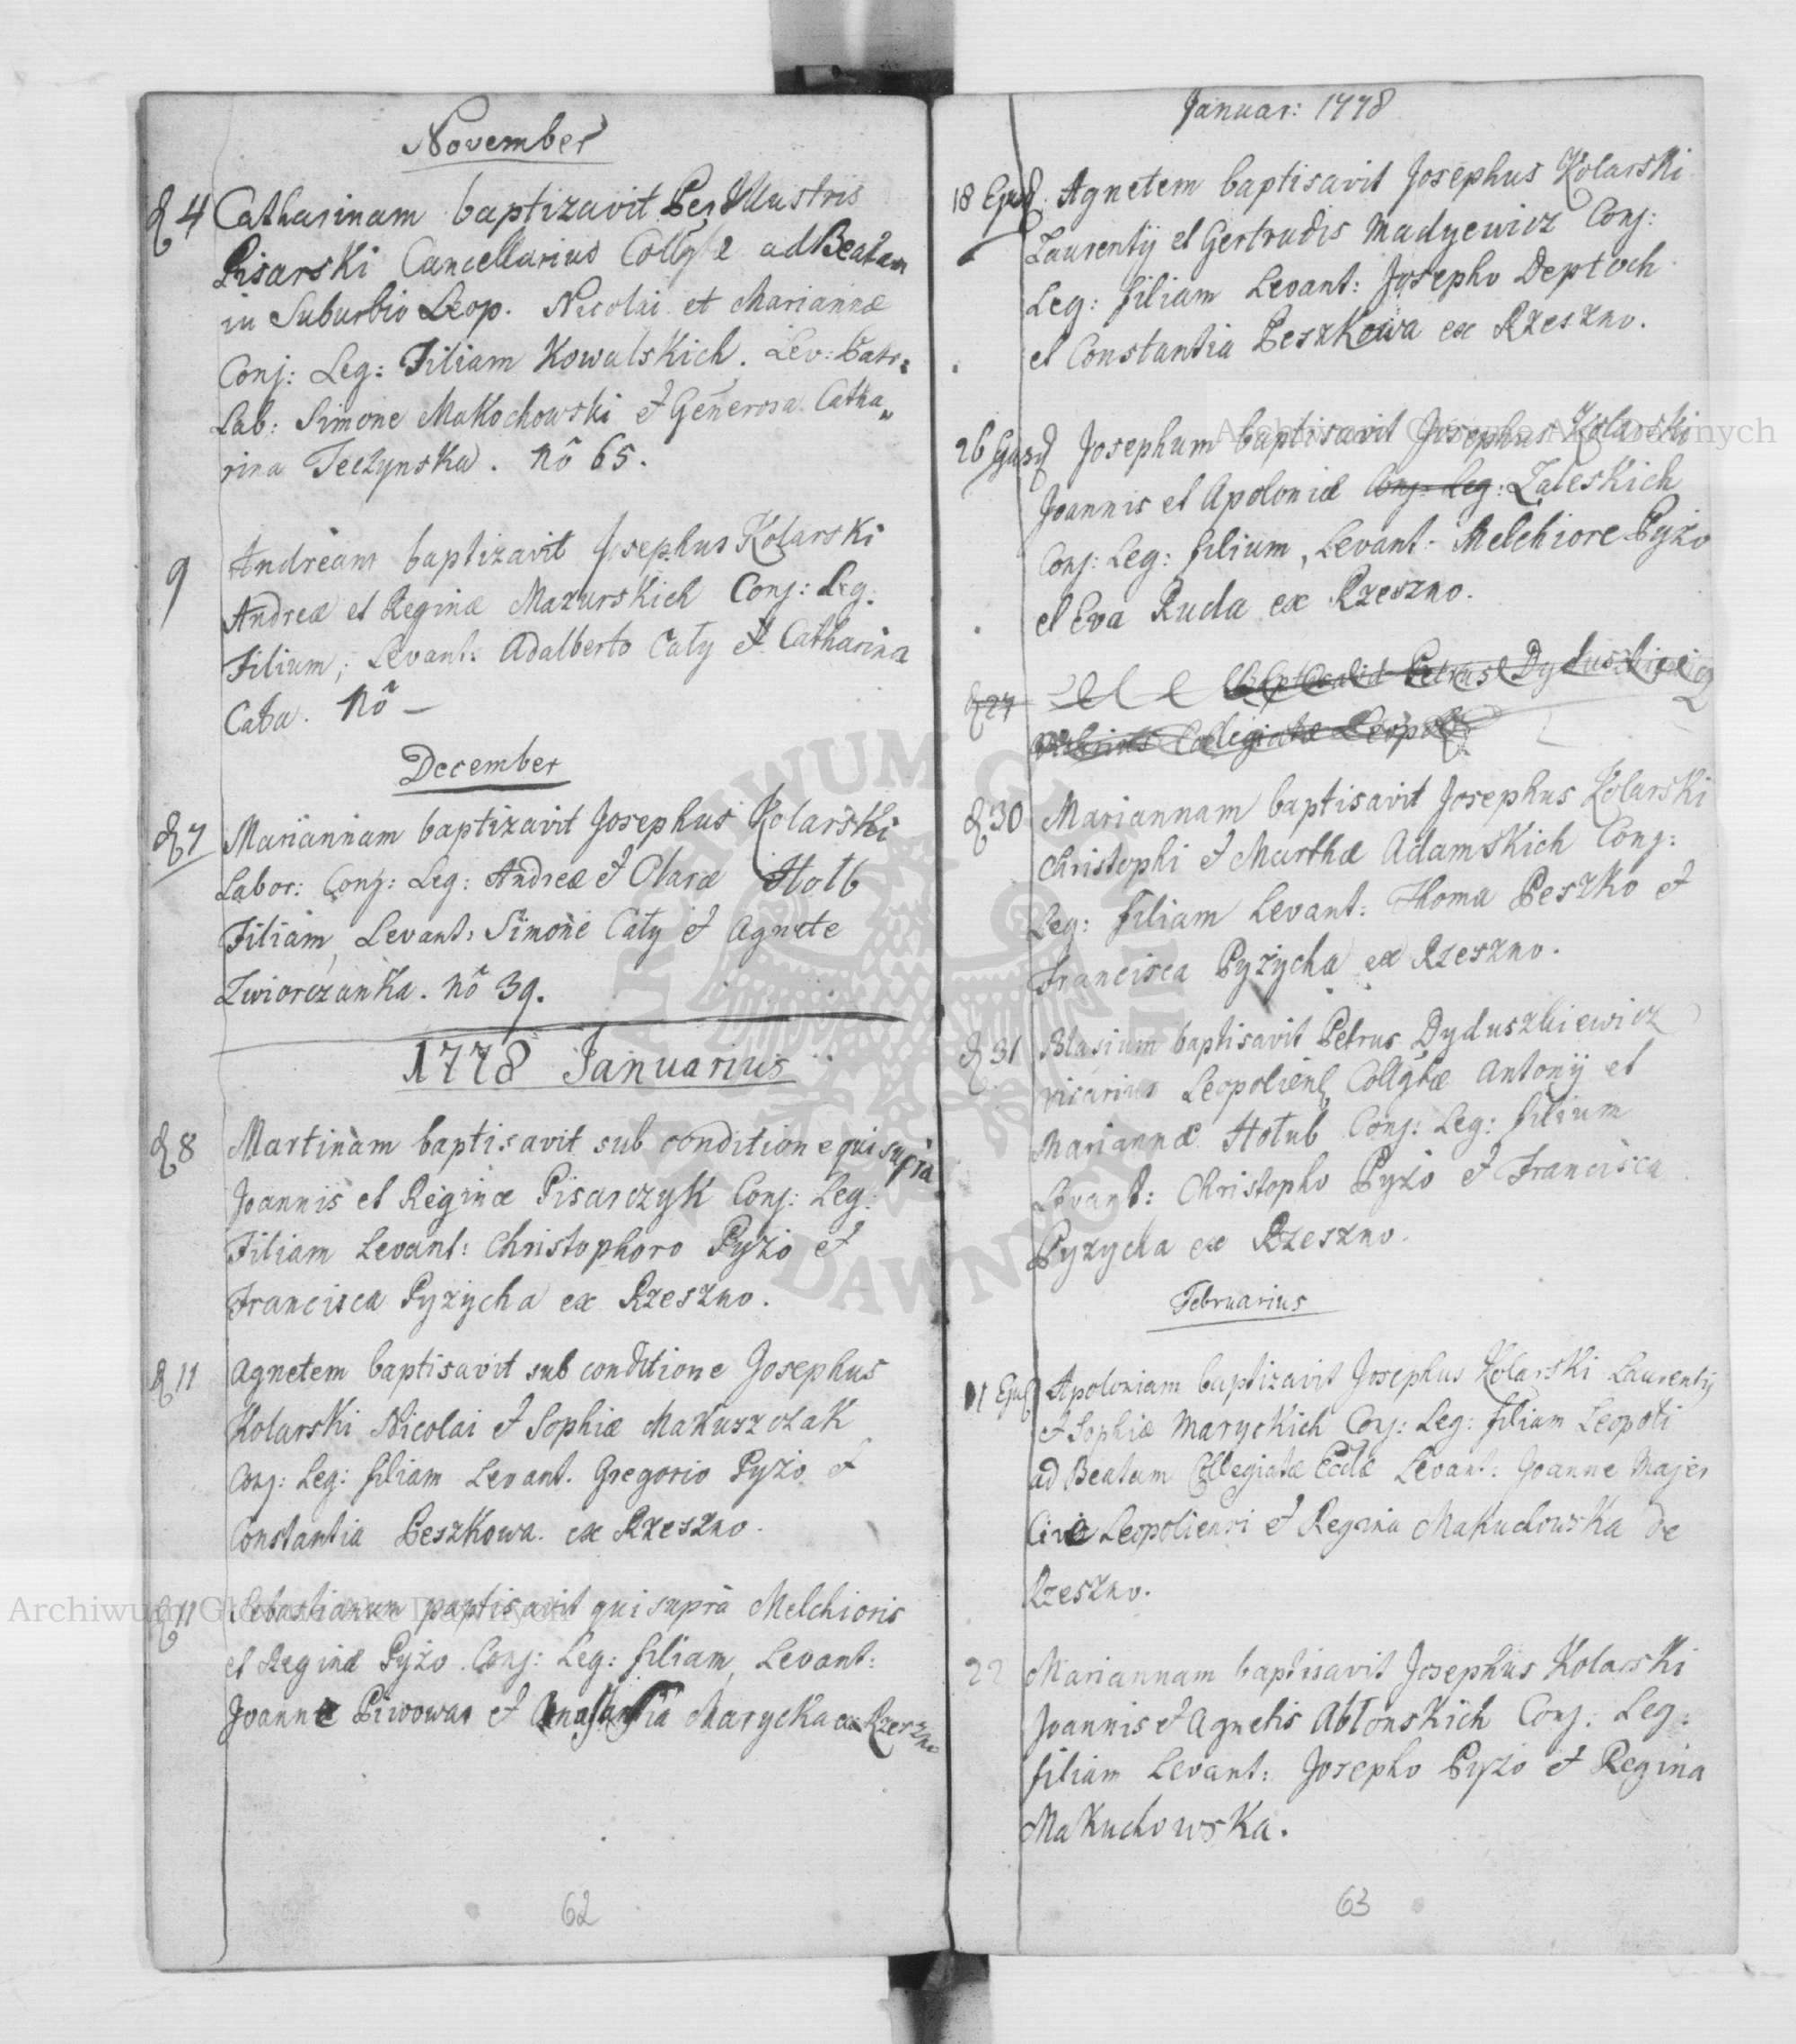 November
D 4 Catharinam baptizavit Per Illustris
Pisarski Cancellarius Collgtæ ad Beatam
in Suburbio Leop. Nicolai et Mariannæ
Conj: Leg: Filiam Kowalskich. Lev:
Lab: Simone Makochowski et Generosa Catha„
rina Teczynska. Nô 65.
9 Andream baptizavit Josephus Kolarski
Andreæ et Reginæ Mazurskich Conj: Leg.
Filium, Levant: Adalberto Cały et Catharina
Cała. Nô —
December
D 7 Mariannam baptizavit Josephus Kolarski
Labor: Conj: Leg: Andreæ et Claræ Hołb
Filiam, Levant: Simone Cały et Agnete
Zwiorczanka. Nô 39.
1778 Januarius
D 8 Martinam baptisavit sub conditione qui supra
Joannis et Reginæ Pisarczyk Conj: Leg:
Filiam Levant: Christophoro Pyżo et
Francisca Pyzycha ex Rzeszno.
D 11 Agnetem baptisavit sub conditione Josephus
Kolarski Nicolai et Sophiæ Makuszczak
Conj: Leg: filiam Levant. Gregorio Pyżo et
Constantia Peszkowa. ex Rzeszno.
D 11 Sebastianum paptisavit qui supra Melchioris
et Reginæ Pyżo Conj: Leg: filiam, Levant:
Joanne Piwowar et Anastasia Marycka ex Rzeszno
62
Januar: 1778
18 Ejusd. Agnetem baptisavit Josephus Kolarski
Laurentij et Gertrudis Madyewicz Conj:
Leg: filiam Levant: Josepho Deptuch
et Constantia Peszkowa ex Rzeszno.
26 Ejusd Josephum baptisavit Josephus Kolarski
Joannis et Apoloniæ Conj: Leg: Zaleskich
Conj: Leg: filium, Levant: Melchiore Pyżo
et Eva Ruda ex Rzeszno.
D 27 Baptisavit Petrus Dyduszkiewicz
Vicarius Collegiatæ Leopol
D 30 Mariannam baptisavit Josephus Kolarski
Christophi et Marthæ Adamskich Conj:
Leg: filiam Levant: Thoma Peszko et
Francisca Pyzycha ex Rzeszno.
D 31 Blasium baptisavit Petrus Dyduszkiewicz
vicarius Leopoliens Collgtæ Antonij et
Mariannæ Hołub Conj: Leg: filium
Levant: Christopho Pyżo et Francisca
Pyzycha ex Rzeszno.
Februarius
11 Ejus Apoloniam baptizavit Josephus Kolarski Laurentij
et Sophiæ Maryckich Conj: Leg: filiam Leopoli
ad Beatam Collegiatæ Eccłæ Levant: Joanne Majer
Cive Leopoliensi et Regina Makuchowska de
Rzeszno.
22 Mariannam baptisavit Josephus Kolarski
Joannis et Agnetis Abłonskich Conj: Leg:
filiam Levant: Josepho Pyżo et Regina
Makuchowska.
63